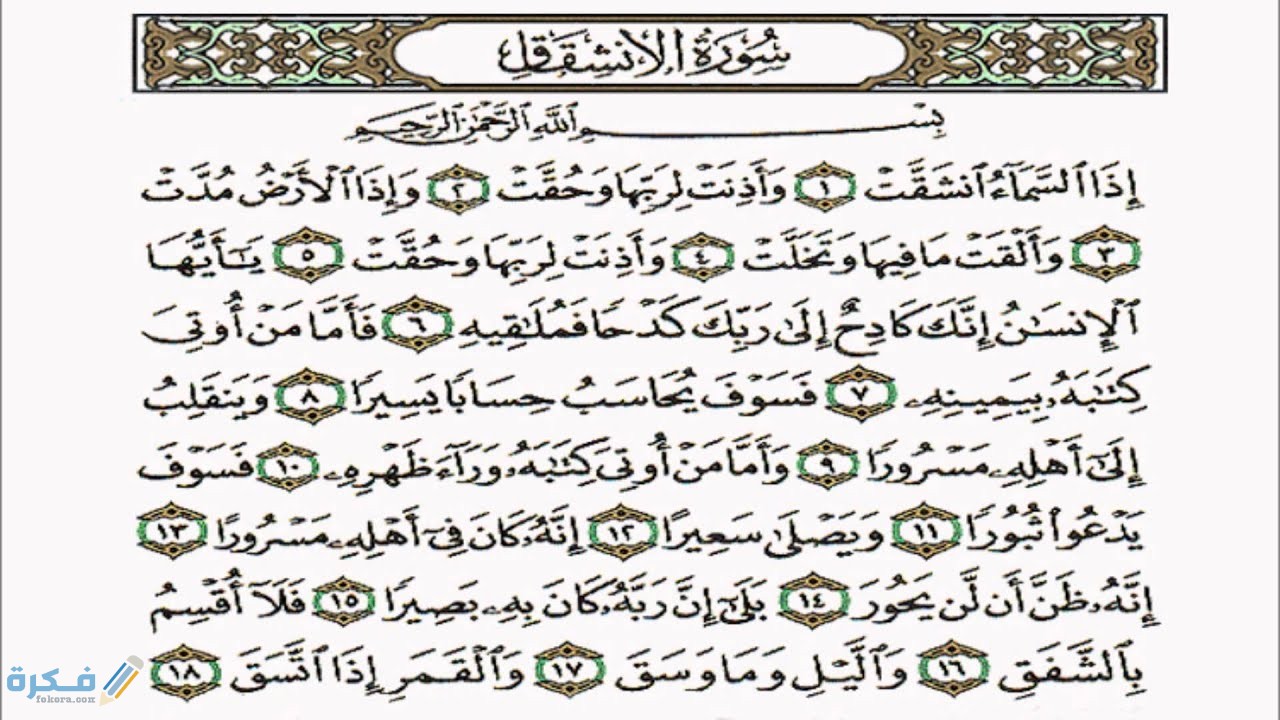 سُورَةُ الانشِقَاقِ
بِسْمِ ٱللَّهِ ٱلرَّحْمَٰنِ ٱلرَّحِيمِ
إِذَا ٱلسَّمَآءُ ٱنشَقَّتْ ١ وَأَذِنَتْ لِرَبِّهَا وَحُقَّتْ ٢ وَإِذَا ٱلْأَرْضُ مُدَّتْ
٣ وَأَلْقَتْ مَا فِيهَا وَتَخَلَّتْ ٤ وَأَذِنَتْ لِرَبِّهَا وَحُقَّتْ ٥ يَٰٓأَيُّهَا
ٱلْإِنسَٰنُ إِنَّكَ كَادِحٌ إِلَىٰ رَبِّكَ كَدْحًا فَمُلَٰقِيهِ ٦ فَأَمَّا مَنْ أُوتِىَ
كِتَٰبَهُۥ بِيَمِينِهِۦ ٧ فَسَوْفَ يُحَاسَبُ حِسَابًا يَسِيرًا ٨ وَيَنقَلِبُ
إِلَىٰٓ أَهْلِهِۦ مَسْرُورًا ٩ وَأَمَّا مَنْ أُوتِىَ كِتَٰبَهُۥ وَرَآءَ ظَهْرِهِۦ ١٠ فَسَوْفَ
يَدْعُوا۟ ثُبُورًا ١١ وَيَصْلَىٰ سَعِيرًا ١٢ إِنَّهُۥ كَانَ فِىٓ أَهْلِهِۦ مَسْرُورًا ١٣
إِنَّهُۥ ظَنَّ أَن لَّن يَحُورَ ١٤ بَلَىٰٓ إِنَّ رَبَّهُۥ كَانَ بِهِۦ بَصِيرًا ١٥ فَلَآ أُقْسِمُ
بِٱلشَّفَقِ ١٦ وَٱلَّيْلِ وَمَا وَسَقَ ١٧ وَٱلْقَمَرِ إِذَا ٱتَّسَقَ ١٨
فكرة
fokora.com